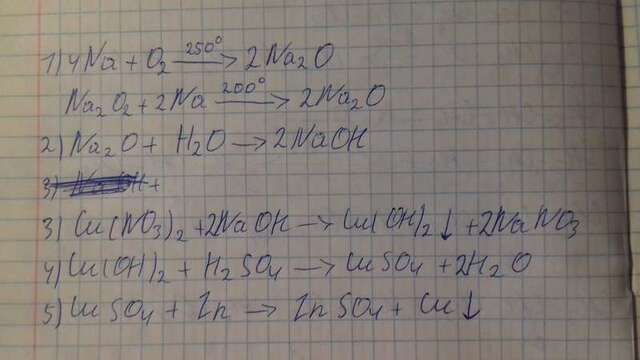 1) 4Na + O₂ 250° → 2Na₂O
Na₂O₂ + 2Na 200° → 2Na₂O
2) Na₂O + H₂O → 2NaOH
3) +
3) Cu(NO3)₂ + 2NaOH → Cu(OH)₂ ↓ + 2NaNO3
4) Cu(OH)₂ + H₂SO4 → CuSO4 + 2H₂O
5) CuSO4 + Zn → ZnSO4 + Cu↓